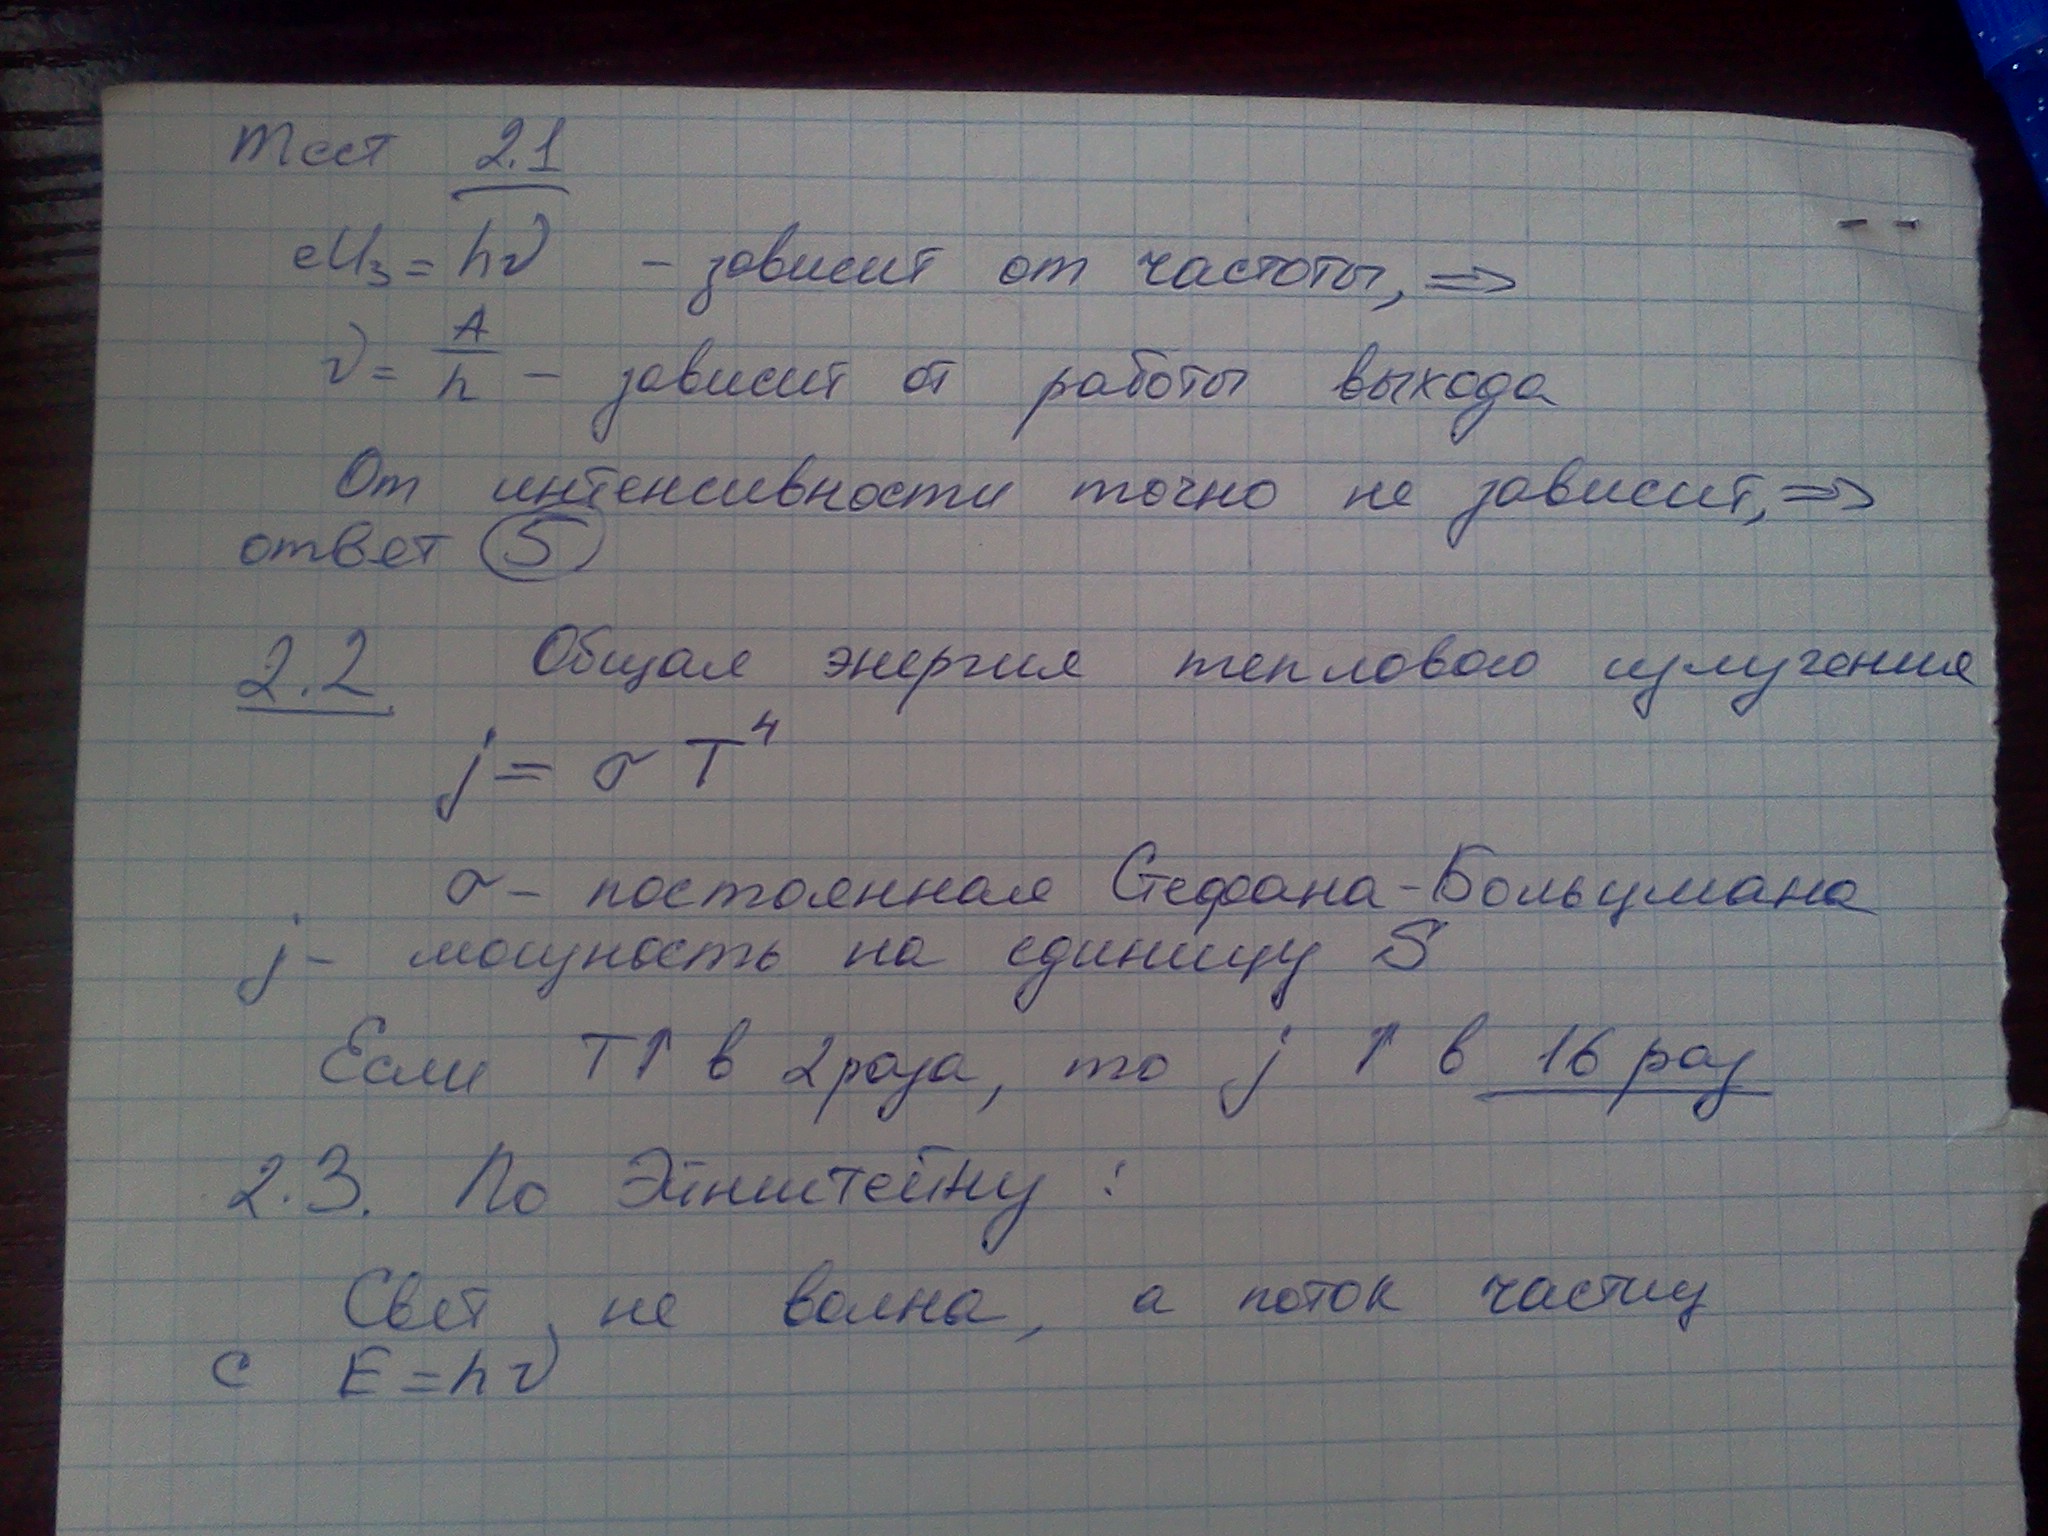 Тест 2.1
eU₃ = hν - зависит от частоты, =>
ν = A/h - зависит от работы выхода
От интенсивности точно не зависит, =>
ответ 5
2.2 Общая энергия теплового излучения
j = σ T⁴
σ - постоянная Стефана-Больцмана
j - мощность на единицу S
Если T↑ в 2 раза, то j ↑ в 16 раз
2.3. По Эйнштейну:
Свет, не волна, а поток частиц
с E = hν